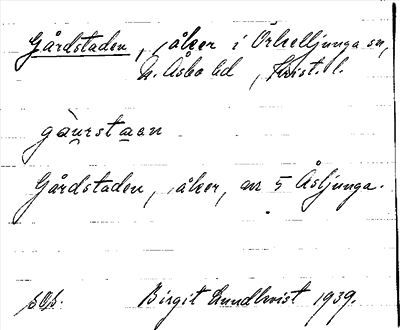 Gårdstaden, åker i Örkelljunga sn,
N. Åsbo hd, Krist. l.
gau̯rstaen
Gårdstaden, åker, nr 5 Åsljunga.
Birgit Lundkvist 1939.